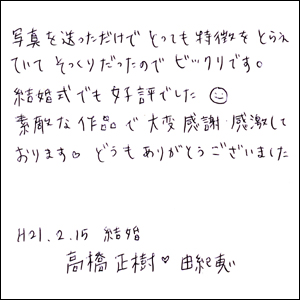 写真を送っただけで とっても 特徴を とらえ
ていて そっくりだったので ビックリです。
結婚式でも 好評でした ☺
素敵な 作品で 大変 感謝・感激して
おります♡ どうも ありがとうございました
H21.2.15 結婚
高橋 正樹♡ 由紀恵